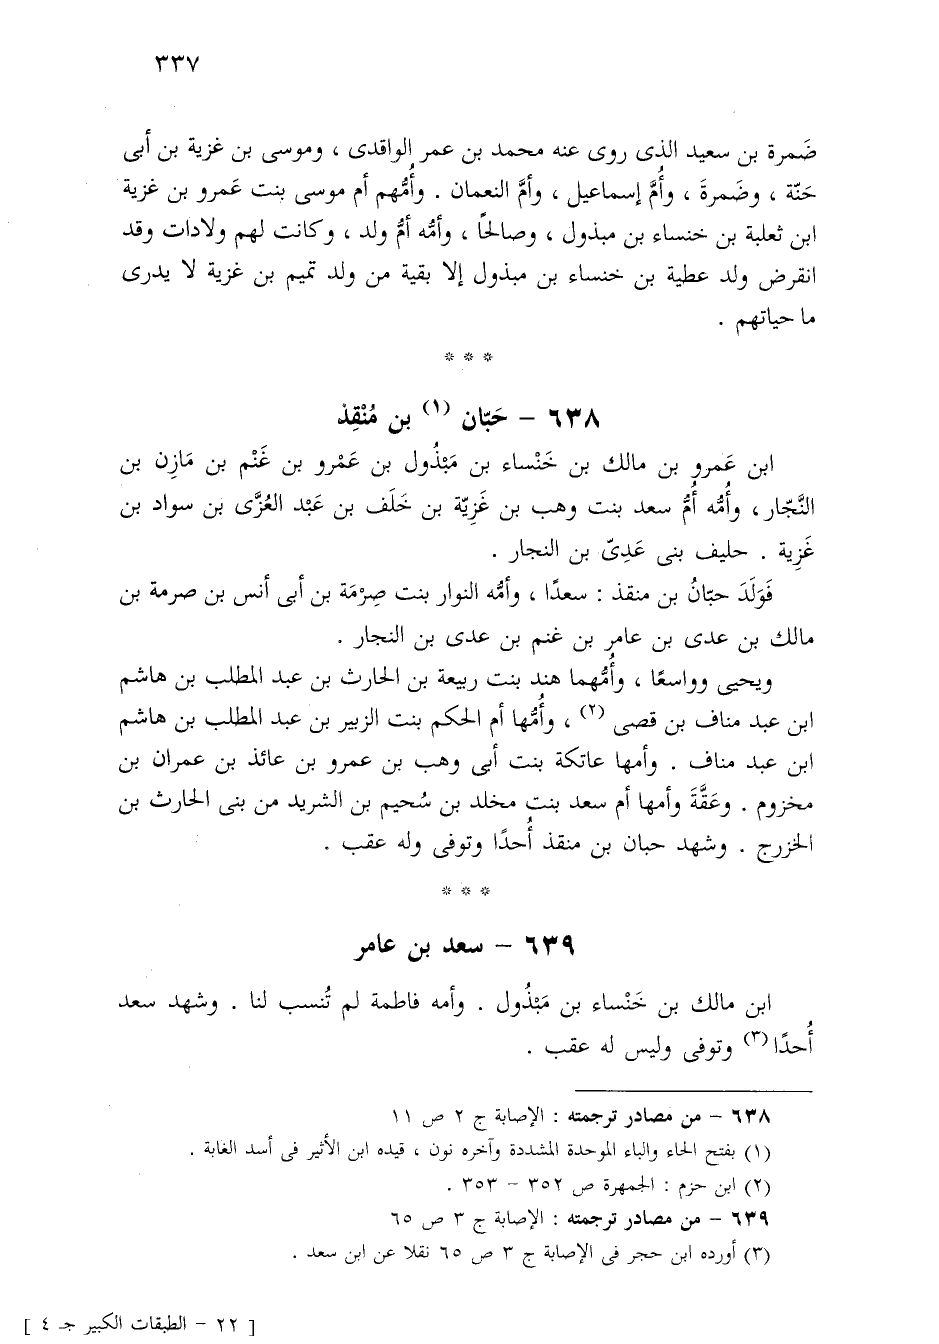 ٣٣٧
ضَمرة بن سعيد الذى روى عنه محمد بن عمر الواقدى ، وموسى بن غزية بن أبى
حَنّة ، وضَمرةَ ، وأُمَّ إسماعيل ، وأمَّ النعمان . وأُمُّهم أم موسى بنت عَمرو بن غزية
ابن ثعلبة بن خنساء بن مبذول ، وصالحًا ، وأمُّه أمُّ ولد ، وكانت لهم ولادات وقد
انقرض ولد عطية بن خنساء بن مبذول إلا بقية من ولد تميم بن غزية لا يدرى
ما حياتهم .
* * *
٦٣٨ – حَبّان (١) بن مُنْقِذ
ابن عَمرو بن مالك بن خَنْساء بن مَبْذُول بن عَمْرو بن غَنْم بن مَازِن بن
النَّجّار ، وأُمُّه أُمُّ سعد بنت وهب بن غَزِيّة بن خَلَف بن عَبْد العُزَّى بن سواد بن
غَزِية . حليف بنى عَدِىّ بن النجار .
فَوَلَدَ حبّانُ بن منقذ : سعدًا ، وأمُّه النوار بنت صِرْمَة بن أبى أنس بن صرمة بن
مالك بن عدى بن عامر بن غنم بن عدى بن النجار .
ويحيى وواسعًا ، وأُمُّهما هند بنت ربيعة بن الحارث بن عبد المطلب بن هاشم
ابن عبد مناف بن قصى (٢) ، وأُمُّها أم الحكم بنت الزبير بن عبد المطلب بن هاشم
ابن عبد مناف . وأمها عاتكة بنت أبى وهب بن عمرو بن عائذ بن عمران بن
مخزوم . وعَقَّةَ وأمها أم سعد بنت مخلد بن سُحيم بن الشريد من بنى الحارث بن
الخزرج . وشهد حبان بن منقذ أُحدًا وتوفى وله عقب .
* * *
٦٣٩ – سعد بن عامر
ابن مالك بن خَنْساء بن مَبْذُول . وأمه فاطمة لم تُنسب لنا . وشهد سعد
أُحدًا (٣) وتوفى وليس له عقب .
٦٣٨ – من مصادر ترجمته : الإصابة ج ٢ ص ١١
(١) بفتح الحاء والباء الموحدة المشددة وآخره نون ، قيده ابن الأثير فى أسد الغابة .
(٢) ابن حزم : الجمهرة ص ٣٥٢ – ٣٥٣ .
٦٣٩ – من مصادر ترجمته : الإصابة ج ٣ ص ٦٥
(٣) أورده ابن حجر فى الإصابة ج ٣ ص ٦٥ نقلا عن ابن سعد .
[ ٢٢ – الطبقات الكبير جـ ٤ ]